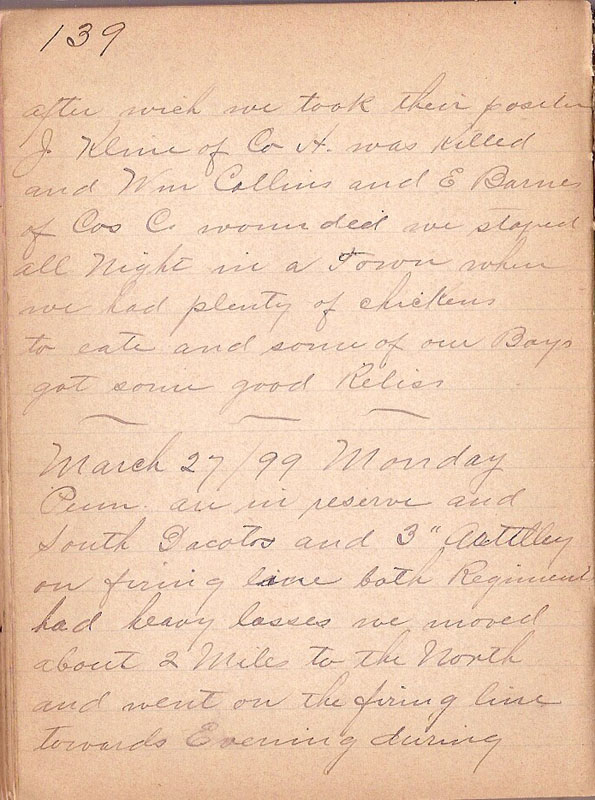 139
after wich we took their position
J. Kline of Co A. was Killed
and Wm Collins and E Barnes
of Cos C. wounded we stayed
all Night in a Town when
we had plenty of chickens
to eate and some of our Boys
got some good Reliss
March 27/99 Monday
Penn. are in reserve and
South Dacotos and 3" Artilley
on firing line both Regiment
had heavy losses we moved
about 2 Miles to the North
and went on the firing line
towards Evening during